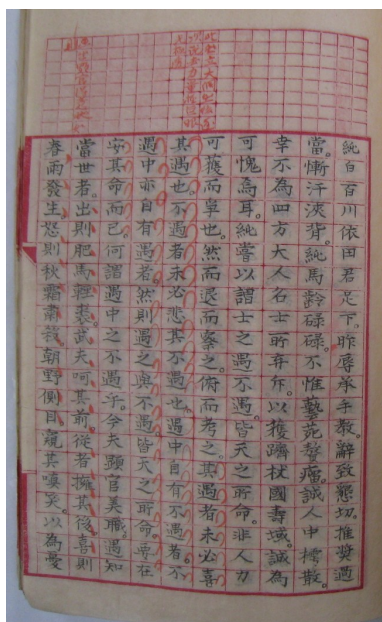 純白百川依田君足下。昨辱承手教。辭致懇切推奬過
當。慚汗浹背。純馬齡碌碌。不惟藝苑贅瘤。誠人中樗散。
幸不為四方大人名士所弃斥。以獲躋杖國壽域。誠為
可愧為耳。純嘗以謂士之遇不遇。皆天之所命。非人力
可獲而辠也。然而退而察之。俯而考之。其遇者未必喜
其遇也。不遇者未必悲其不遇也。遇中自有不遇者。不
遇中亦自有遇者。然則遇之與不遇。皆天之所命。要在
安其命而已。何謂遇中之不遇乎。今夫顯官美職。遇知
當世者。出則肥馬輕裘。武夫呵其前。從者擁其後。喜則
春雨發生。怒則秋霜肅殺。朝野側目。窺其嚬笑。以為憂